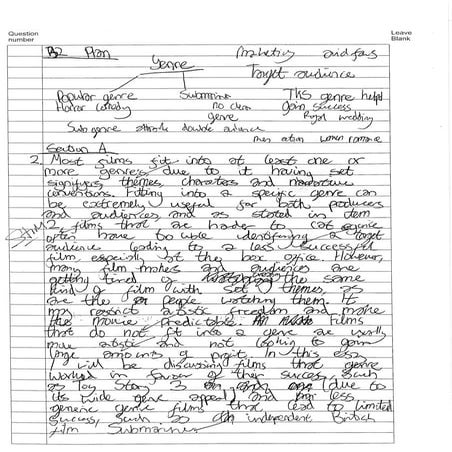 Question number
Leave Blank
B2 Plan
Marketing and fans
Genre
Target audience
Popular genre
Submarine
This genre helped
Horror comedy
no clear
gain success
genre
Royal wedding
Sub genre attracts double audience
men action women romance
Section A
2. Most films fit into at least one or
more genres due to it having set
signifyers, themes, characters and narrative
conventions. Fitting into a specific genre can
be extremely useful for both producers
and audiences and as stated in item
2 films that are harder to categorise
often have trouble identifying a target
audience leading to a less successful
film, especially at the box office. However,
many film makers and audiences are
getting tired of the same
kind of film with set themes, as
are the people watching them. It
may restrict artistic freedom and make
the movie predictable. Films
that do not fit into a genre are usually
more artistic and not looking to gain
large amounts of profit. In this essay
I will be discussing films that genre
worked in favour of their success such
as Toy Story 3 (due to
its wide genre appeal) and less
generic genre films that lead to limited
success, such as independent British
film Submarine